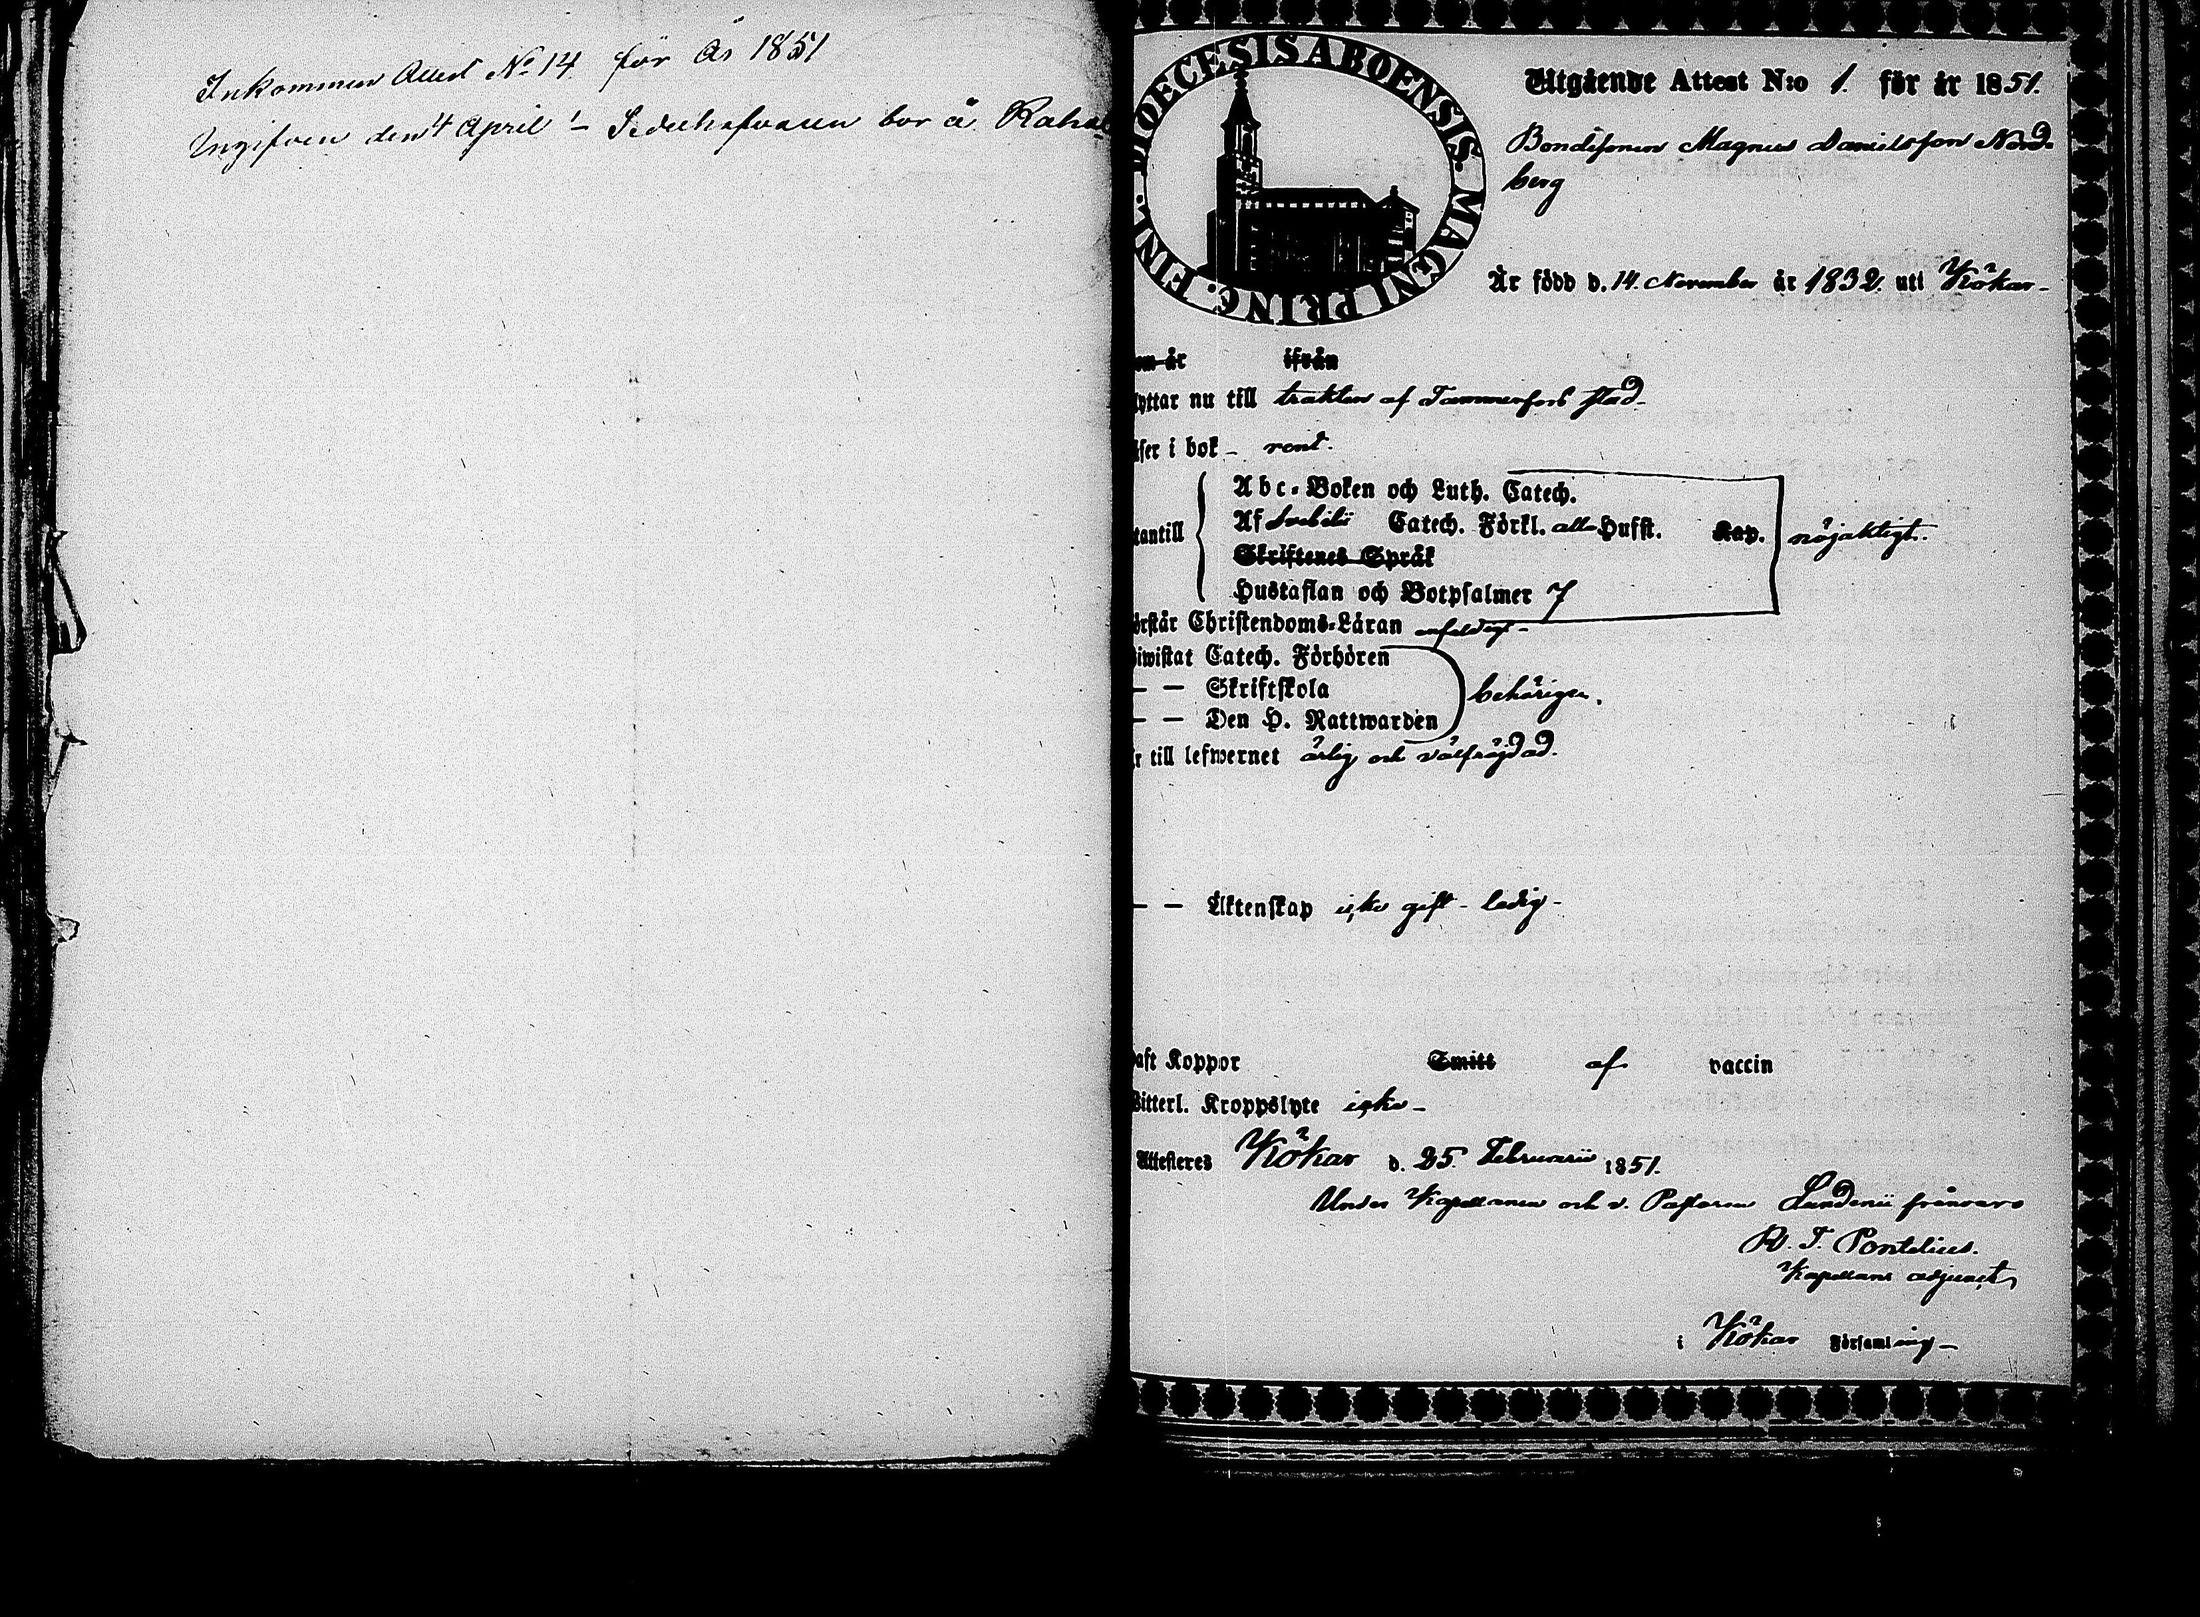 Inkommen Attest No 14 för År 1851
Ingifven den 4 April bor å
DIOECESIS ABOENSIS. MAGNI PRINC. FINL.
Utgående Attest N:o 1. för år 1851.
Bondesonen Magnus Danielsson Nord-
berg
Är född d. 14. November år 1832. uti Kökar-
om år ifrån
lyttar nu till trakten af Tammerfors stad-
äser i bok - rent.
Abc-Boken och Luth. Catech.
tantill Af Svebilii Catech. Förkl. alla Hufst. Kap. nöjaktigt.
Skriftenes Språk
Hustaflan och Botpsalmer 7
örstår Christendoms-Läran enfaldigt-
iwistat Catech. Förhören
- - Skriftskola behörigen.
- - Den H. Nattwarden
r till lefwernet ärlig och välfrägdad.
- - Äktenskap icke gift - ledig-
aft Koppor Smitt af vaccin
itterl. Kroppslyte icke-
Attesteres Kökar d. 25. Februarii 1851.
Under Kapellanen och v. Pastoren Lundenii frånvaro
T. Pontelius.
Kapellans adjunct,
i Kökar Församling-